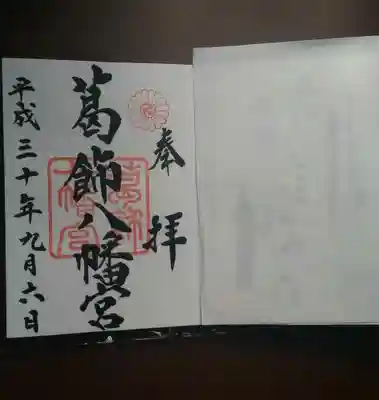 奉拝
葛飾八幡宮
平成三十年九月六日
葛飾八幡宮